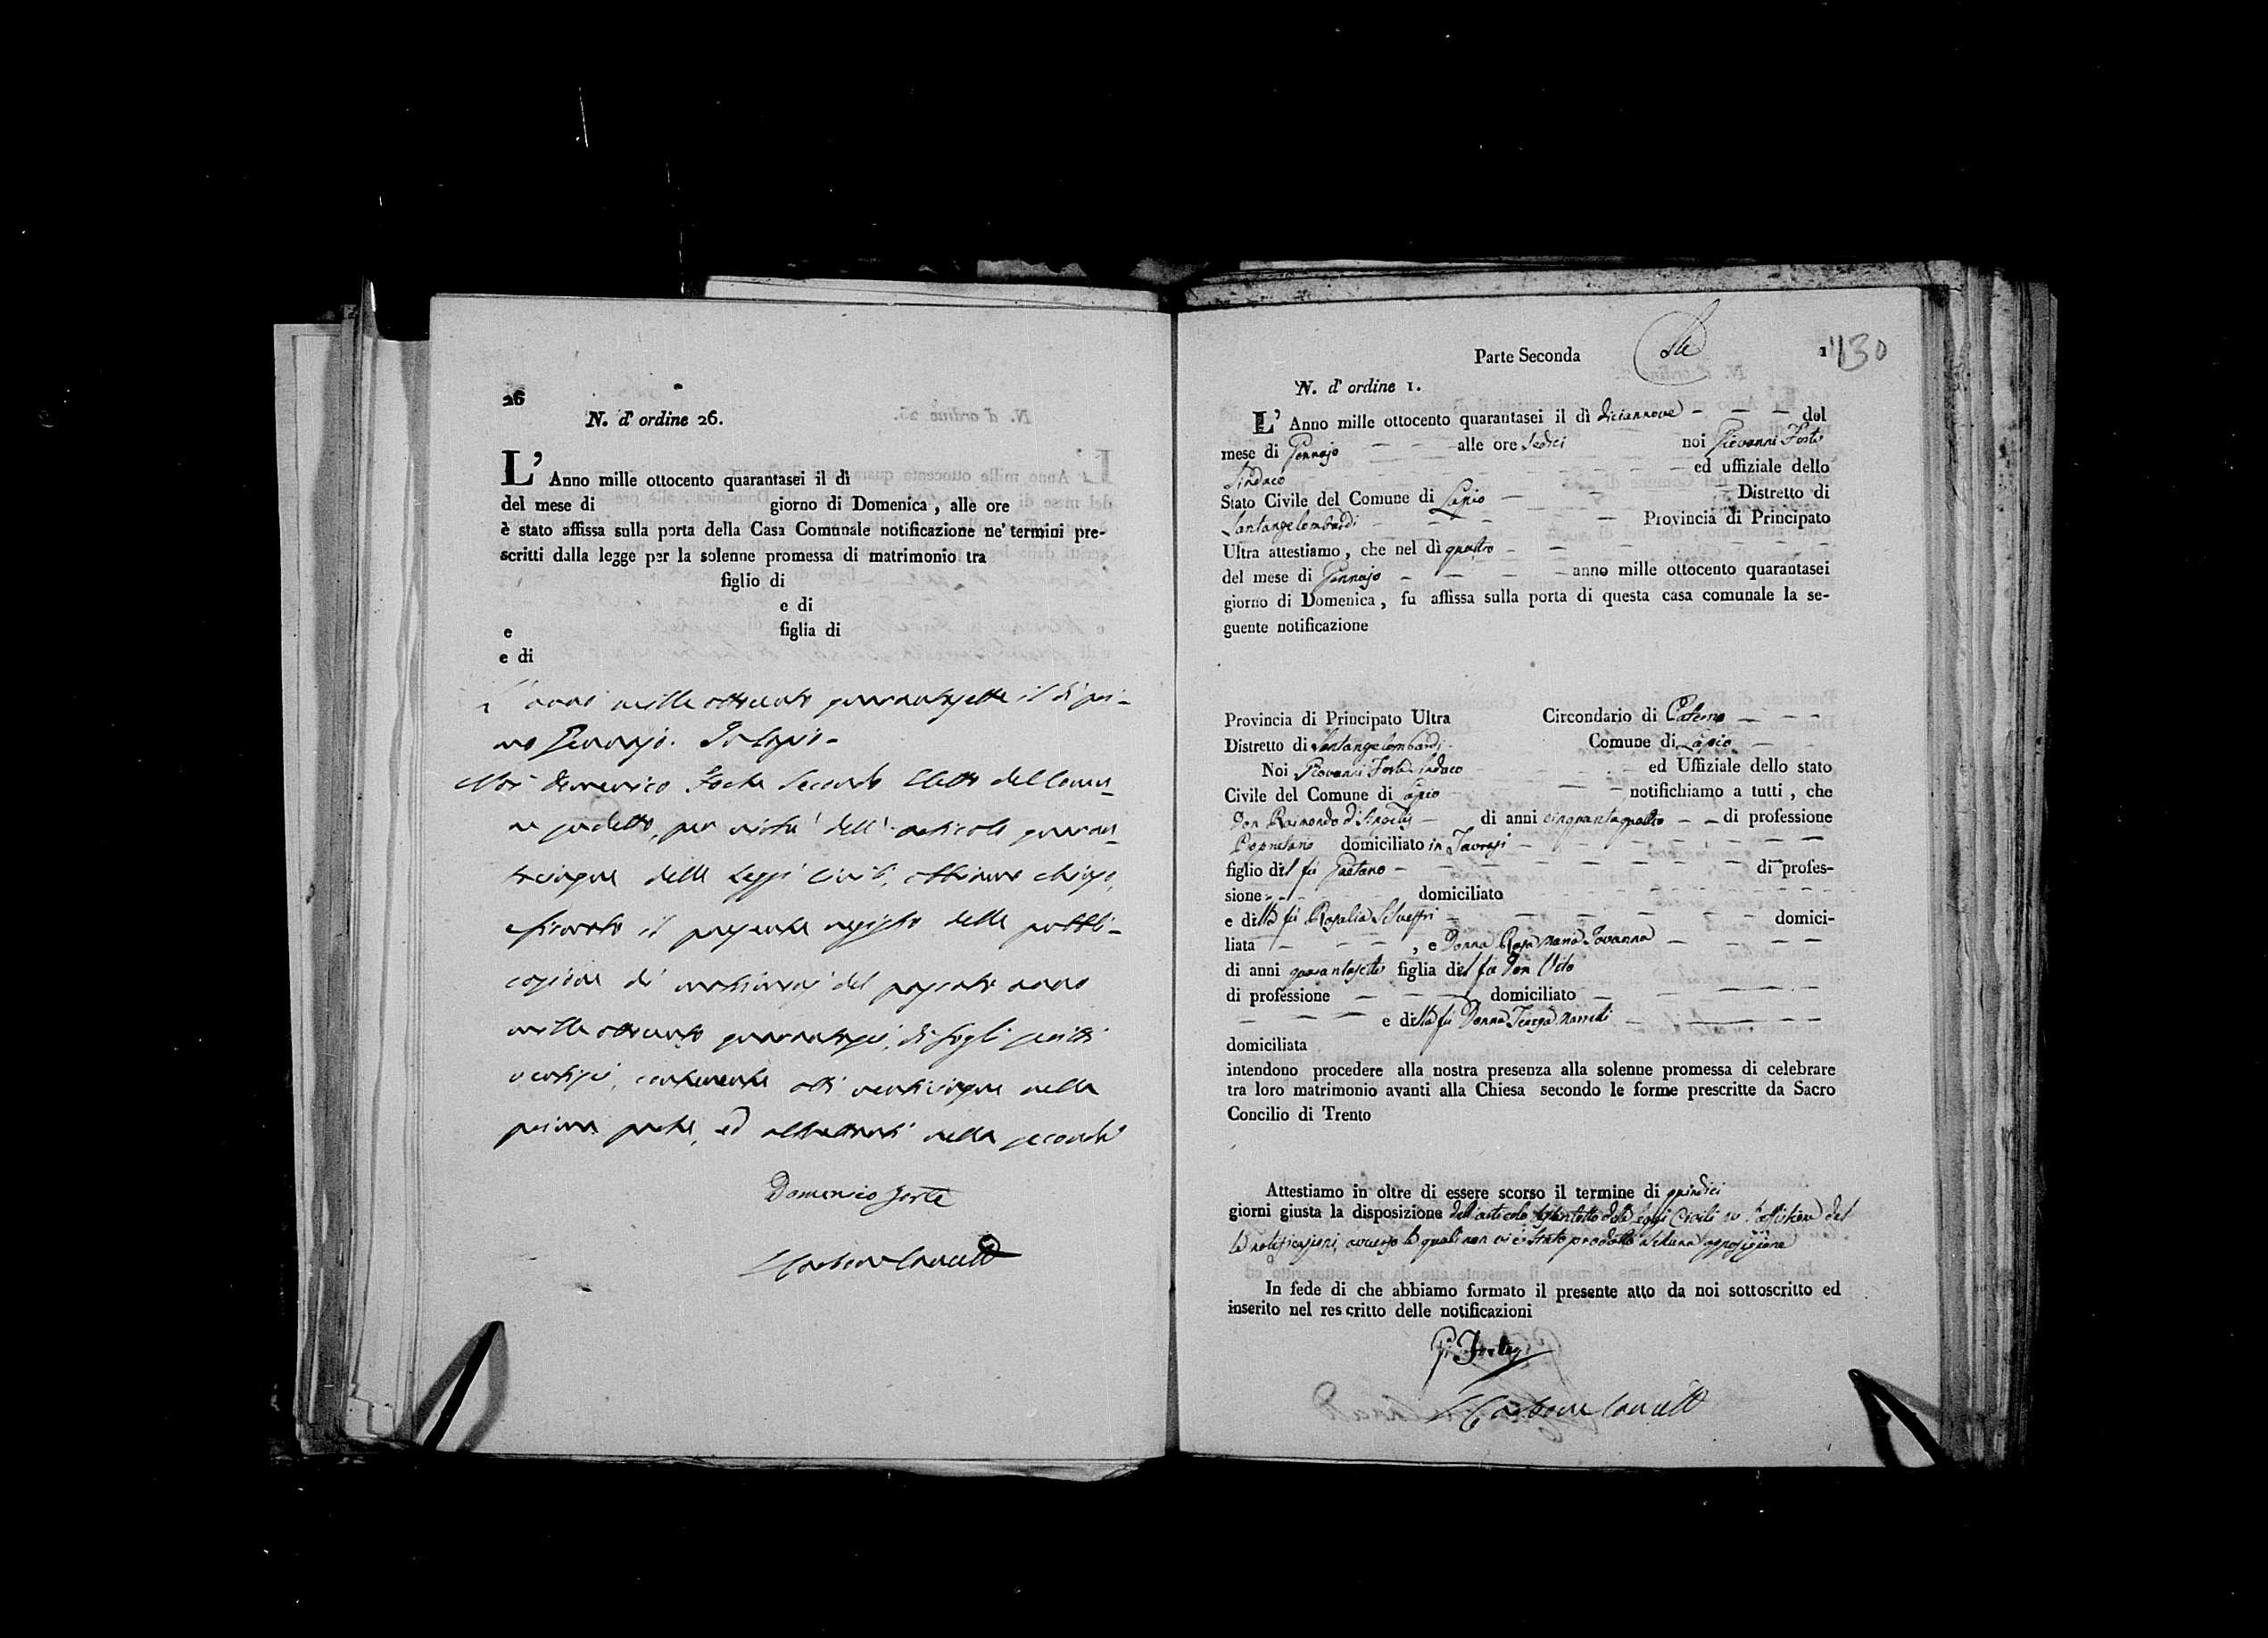 26
N. d' ordine 26.
L' Anno mille ottocento quarantasei il dì
del mese di giorno di Domenica , alle ore
è stato affissa sulla porta della Casa Comunale notificazione ne' termini pre-
scritti dalla legge per la solenne promessa di matrimonio tra
figlio di
e di
e figlia di
e di
L' anno mille ottocento quarantasette il dì pri-
mo Gennajo. In Lapio-
Noi Domenico Forte Secondo Eletto del Comu-
ne sudetto, per virtù dell' articolo quaran-
tacinque delle Leggi Civili, abbiamo chiuso,
e firmato il presente registro delle pubbli-
cazioni di matrimonj del passato anno
mille ottocento quarantasei, di fogli scritti
ventisei, contenente atti venticinque nella
prima parte, ed altrettanti nella seconda
Domenico Forte
Parte Seconda
1 130
N. d' ordine 1.
L' Anno mille ottocento quarantasei il dì diciannove del
mese di Gennajo alle ore sedici noi Giovanni Forte
Sindaco ed uffiziale dello
Stato Civile del Comune di Lapio Distretto di
Santangelombardi Provincia di Principato
Ultra attestiamo , che nel dì quattro
del mese di Gennajo anno mille ottocento quarantasei
giorno di Domenica , fu affissa sulla porta di questa casa comunale la se-
guente notificazione
Provincia di Principato Ultra Circondario di Paterno
Distretto di Santangelombardi Comune di Lapio
Noi Giovanni Forte Sindaco ed Uffiziale dello stato
Civile del Comune di Lapio notifichiamo a tutti , che
Don Raimondo di anni cinquantaquattro di professione
Proprietario domiciliato in Taurasi
figlio del fu Gaetano di profes-
sione domiciliato
e della fu Rosalia Silvestri domici-
liata , e Donna Rosa Maria Iovanna
di anni quarantasette figlia del fu Don Vito
di professione domiciliato
e della fu Donna Teresa
domiciliata
intendono procedere alla nostra presenza alla solenne promessa di celebrare
tra loro matrimonio avanti alla Chiesa secondo le forme prescritte da Sacro
Concilio di Trento
Attestiamo in oltre di essere scorso il termine di quindici
giorni giusta la disposizione dell'articolo settantotto delle Leggi Civili su l'affissione del
le notificazioni, avverso le quali non vi è stato prodotto alcuna opposizione
In fede di che abbiamo formato il presente atto da noi sottoscritto ed
inserito nel res critto delle notificazioni
G. Forte